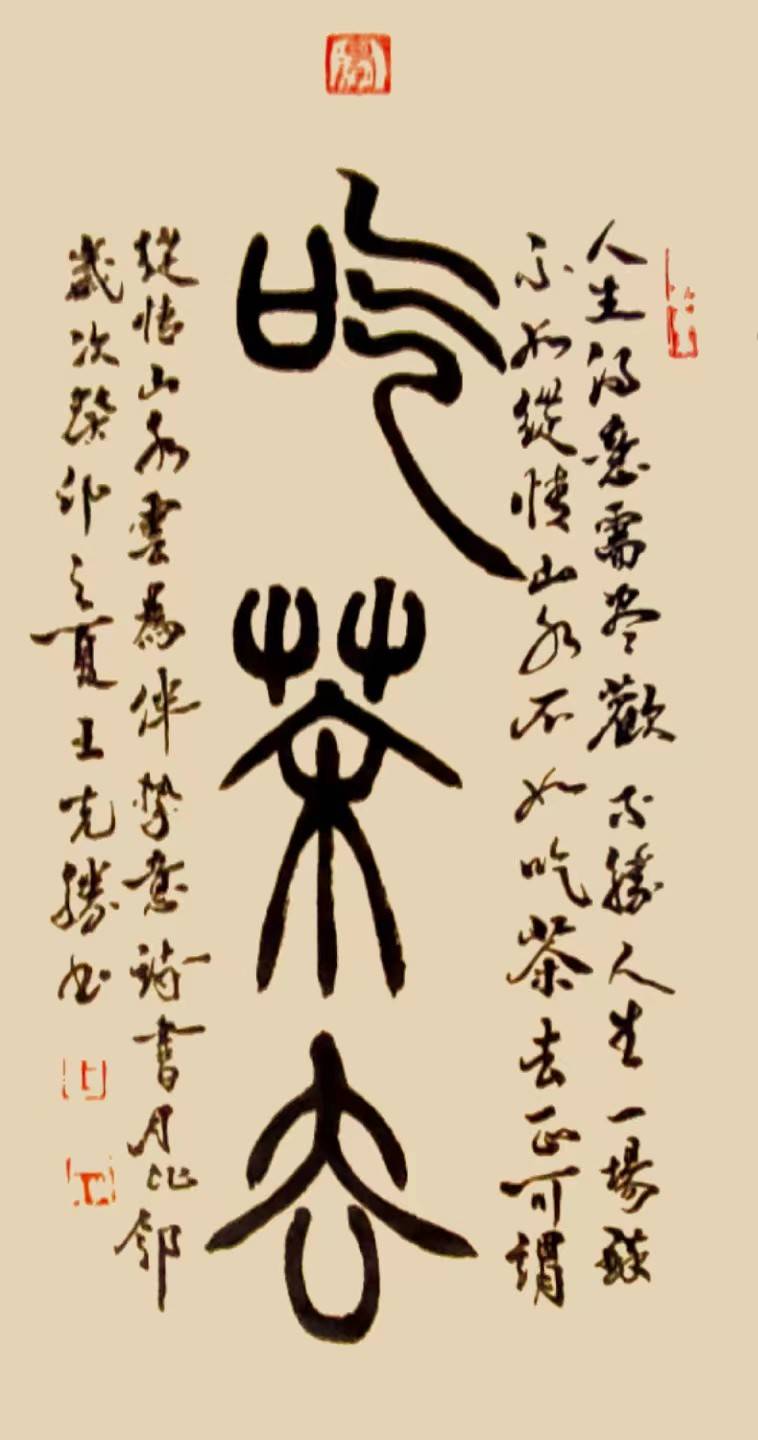 人生得意需尽歡不勝人生一場醉
不如縱情山水不如吃茶去正可謂
吃茶去
縱情山水雲為伴摯意詩書月作鄰
歲次癸卯之夏王克勝书